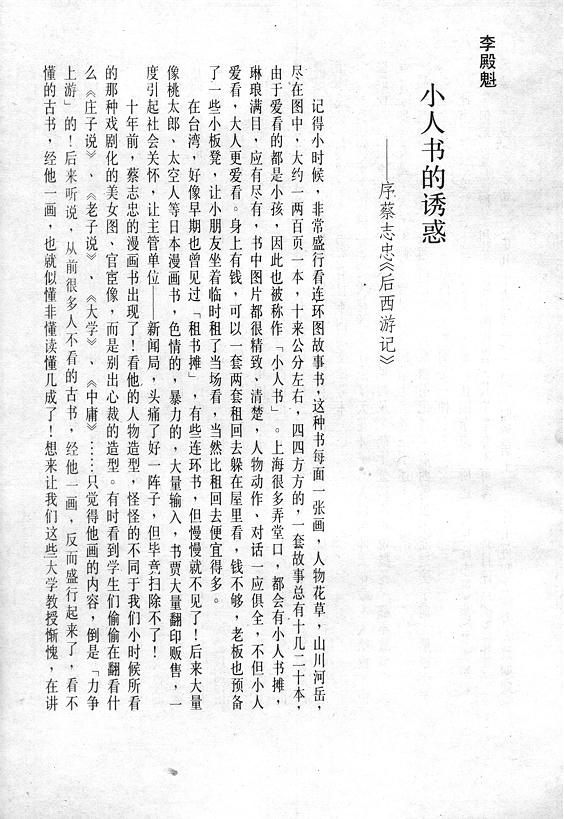 李殿魁
小人书的诱惑
——序蔡志忠《后西游记》
记得小时候，非常盛行看连环图故事书，这种书每面一张画，人物花草，山川河岳，
尽在图中，大约一两百页一本，十来公分左右，四四方方的，一套故事总有十几二十本，
由于爱看的都是小孩，因此也被称作「小人书」。上海很多弄堂口，都会有小人书摊，
琳琅满目，应有尽有，书中图片都很精致、清楚，人物动作、对话一应俱全，不但小人
爱看，大人更爱看。身上有钱，可以一套两套租回去躲在屋里看，钱不够，老板也预备
了一些小板凳，让小朋友坐着临时租了当场看，当然比租回去便宜得多。
在台湾，好像早期也曾见过「租书摊」，有些连环书，但慢慢就不见了！后来大量
像桃太郎、太空人等日本漫画书，色情的，暴力的，大量输入，书贾大量翻印贩售，一
度引起社会关怀，让主管单位——新闻局，头痛了好一阵子，但毕竟扫除不了！
十年前，蔡志忠的漫画书出现了！看他的人物造型，怪怪的不同于我们小时候所看
的那种戏剧化的美女图、官宦像，而是别出心裁的造型。有时看到学生们偷偷在翻看什
么《庄子说》、《老子说》、《大学》、《中庸》……只觉得他画的内容，倒是「力争
上游」的！后来听说，从前很多人不看的古书，经他一画，反而盛行起来了，看不
懂的古书，经他一画，也就似懂非懂读懂几成了！想来让我们这些大学教授惭愧，在讲